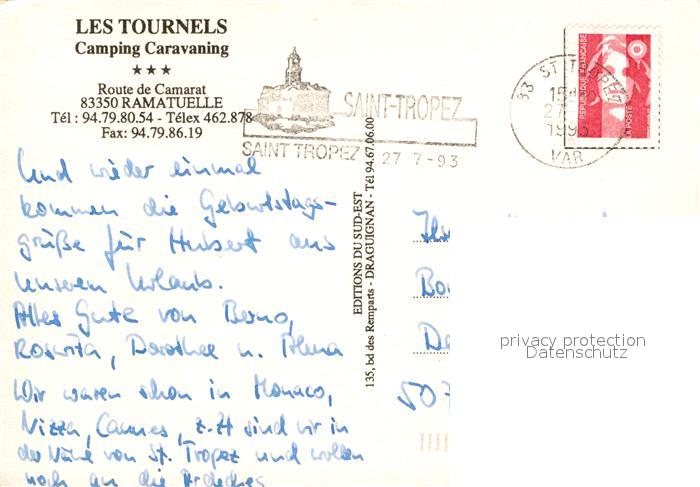 LES TOURNELS
Camping Caravaning
★★★
Route de Camarat
83350 RAMATUELLE
Tél : 94.79.80.54 - Télex 462.878
Fax: 94.79.86.19
SAINT-TROPEZ
SAINT TROPEZ 27 7-93
83 ST TROPEZ
1993
VAR
REPUBLIQUE FRANÇAISE
LA POSTE
Und wieder einmal
kommen die Geburtstags-
grüße für Hubert aus
unserem Urlaub.
Alles Gute von Berno,
Roswita, Dorothee u.
Wir waren schon in Monaco,
Nizza, Cannes, z.Zt sind wir in
der Nähe von St. Tropez und wollen
noch an die Ardeches
EDITIONS DU SUD-EST
135, bd des Remparts - DRAGUIGNAN - Tél 94.67.06.00
privacy protection
Datenschutz